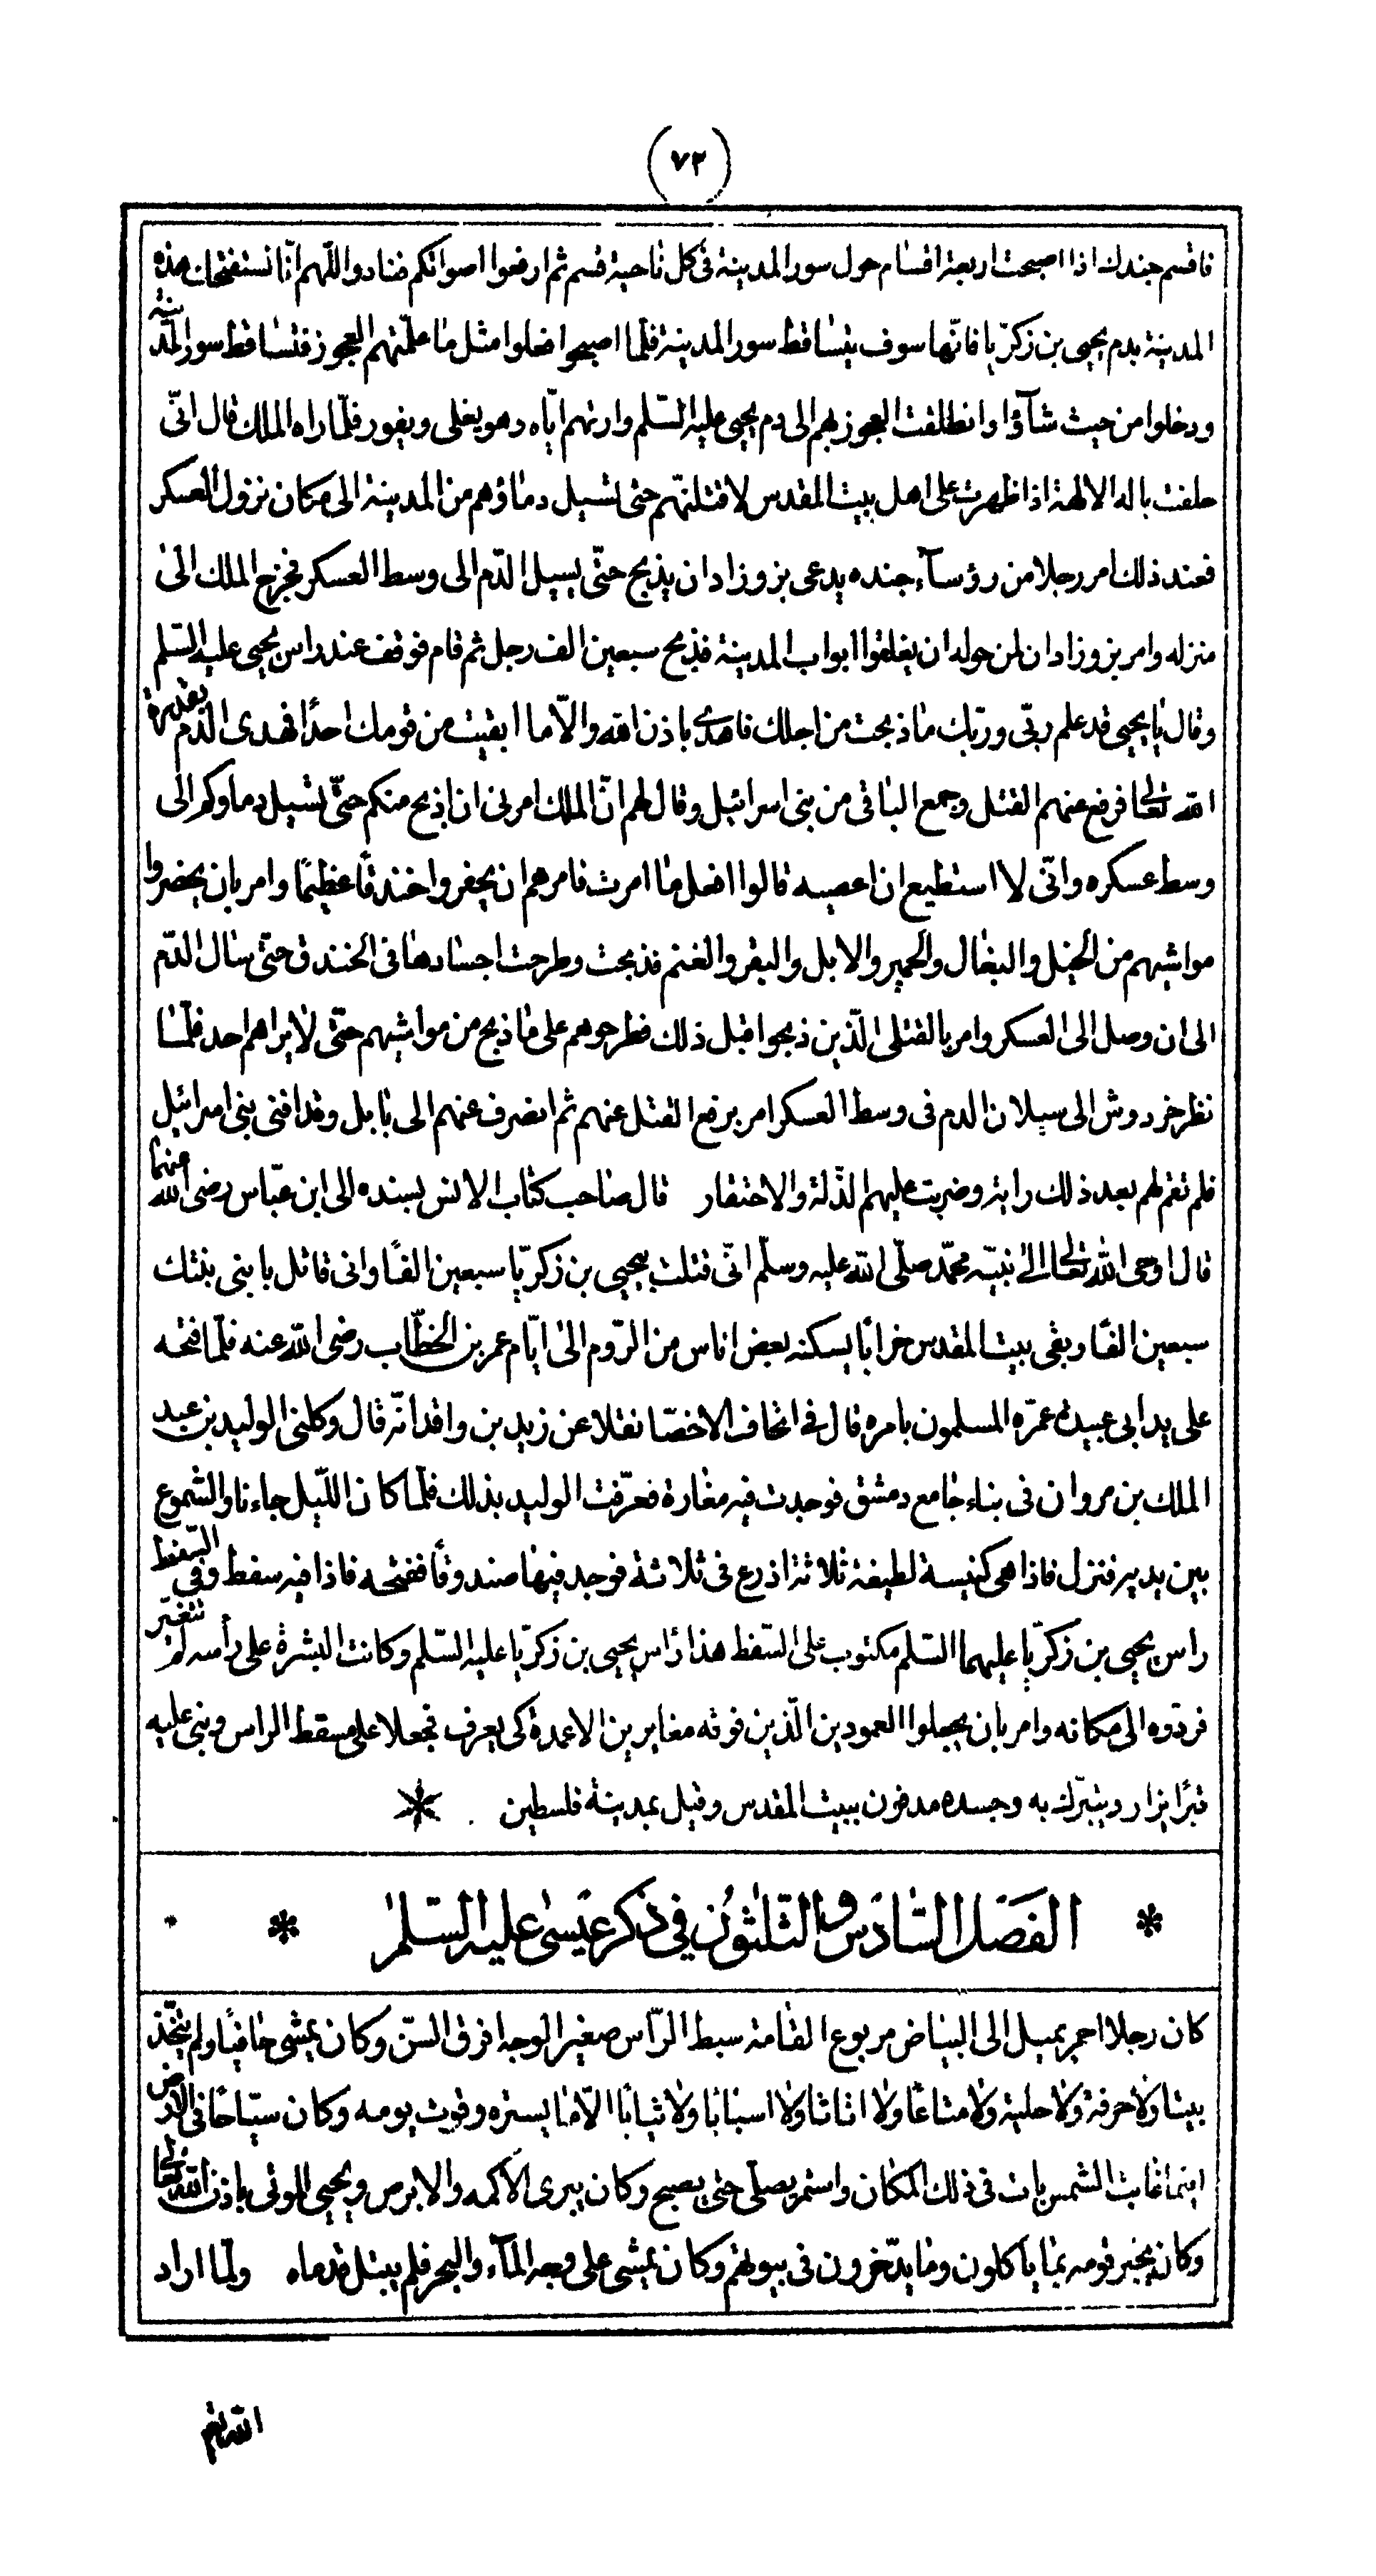 (٧٢)
فاقسم جندك اذا اصبحت اربعة اقسام حول سور المدينة فى كل ناحية قسم ثم ارفعوا اصواتكم فنادوا اللهم انّا نستفتحك هذه
المدينة بدم يحيى بن زكريّا فانّها سوف يتساقط سور المدينة فلما اصبحوا فعلوا مثل ما علّمتهم العجوز فتساقط سور المدينة
ودخلوا من حيث شآؤا وانطلقت العجوز بهم الى دم يحيى عليه السّلم وارتهم ايّاه وهو يغلى ويفور فلمّا راه الملك قال انّى
حلفت باله الالهة اذا ظهرت على اهل بيت المقدس لاقتلنّهم حتى تسيل دماؤهم من المدينة الى مكان نزول العسكر
فعند ذلك امر رجلا من رؤسآء جنده يدعى بزوزادان يذبح حتّى يسيل الدّم الى وسط العسكر فخرج الملك الى
منزله وامر بزوزادان لمن حوله ان يغلقوا ابواب المدينة فذبح سبعين الف رجل ثم قام فوقف عند راس يحيى عليه السّلم
وقال يا يحيى قد علم ربّى وربّك ما ذبحت من اجلك فاهدى باذن الله والّا ما ابقيت من قومك احدًا فهدى الدّم بقدرة
الله تعالى فرفع عنهم القتل وجمع الباقى من بنى اسرائيل وقال لهم انّ الملك امرنى ان اذبح منكم حتّى تسيل دماوكم الى
وسط عسكره وانّى لا استطيع ان اعصيه قالوا افعل ما امرت فامرهم ان يحفروا خندقًا عظيمًا وامر بان يحضروا
مواشيهم من الخيل والبغال والحمير والابل والبقر والغنم فذبحت وطرحت اجسادها فى الخندق حتّى سال الدّم
الى ان وصل الى العسكر وامر بالقتلى الّذين ذبحوا قبل ذلك فطرحوهم على ما ذبح من مواشيهم حتّى لا يراهم احد فلمّا
نظر خردوش الى سيلان الدم فى وسط العسكر امر برفع القتل عنهم ثم انصرف عنهم الى بابل وقد افنى بنى اسرائيل
فلم تقم لهم بعد ذلك راية وضربت عليهم الذّلة والاحتقار قال صاحب كتاب الانس بسنده الى ابن عبّاس رضى الله عنهما
قال اوحى الله تعالى الى نبيّه محمّد صلّى الله عليه وسلّم انّى قتلت بيحيى بن زكريّا سبعين الفًا وانى قاتل بابنى بنتك
سبعين الفًا وبقى بيت المقدس خرابًا يسكنه بعض اناس من الرّوم الى ايّام عمر بن الخطّاب رضى الله عنه فلمّا فتحه
على يد ابى عبيدة عمّره المسلمون بامره قال فى اتحاف الاخصّا نقلا عن زيد بن واقد انّه قال وكلنى الوليد بن عبد
الملك بن مروان فى بناء جامع دمشق فوجدت فيه مغارة فعرّفت الوليد بذلك فلمّا كان اللّيل جاءنا والشموع
بين يديه فنزل فاذا هى كنيسة لطيفة ثلاثة اذرع فى ثلاثة فوجد فيها صندوقًا ففتحه فاذا فيه سفط وفى السّفط
راس يحيى بن زكريّا عليهما السّلم مكتوب على السّفط هذا رّاس يحيى بن زكريّا عليه السّلم وكانت البشرة على رأسه لم تتغيّر
فردّوه الى مكانه وامر بان يجعلوا العمودين الّذين فوقه مغايرين الاعمدة كى يعرف فجعلا على مسقط الراس وبنى عليه
قبرًا يزار ويتبرّك به وجسده مدفون ببيت المقدس وقيل بمدينة فلسطين
الفصل السّادس والثّلثون فى ذكر عيسى عليه السّلم
كان رجلا احمر يميل الى البياض مربوع القامة سبط الرّاس صغير الوجه افرق السنّ وكان يمشى حافيًا ولم يتّخذ
بيتا ولا حرفة ولا حلية ولا متاعًا ولا اثاثا ولا اسبابًا ولا ثيابًا الّا ما يستره وقوت يومه وكان سيّاحًا فى الارض
اينما غابت الشمس بات فى ذلك المكان واستمر يصلّى حتى يصبح وكان يبرى الأكمه والابرص ويحيى الموتى باذن الله تعالى
وكان يخبر قومه بما ياكلون وما يدّخرون فى بيوتهم وكان يمشى على وجه المآء والبحر فلم يبتل قدماه ولمّا اراد